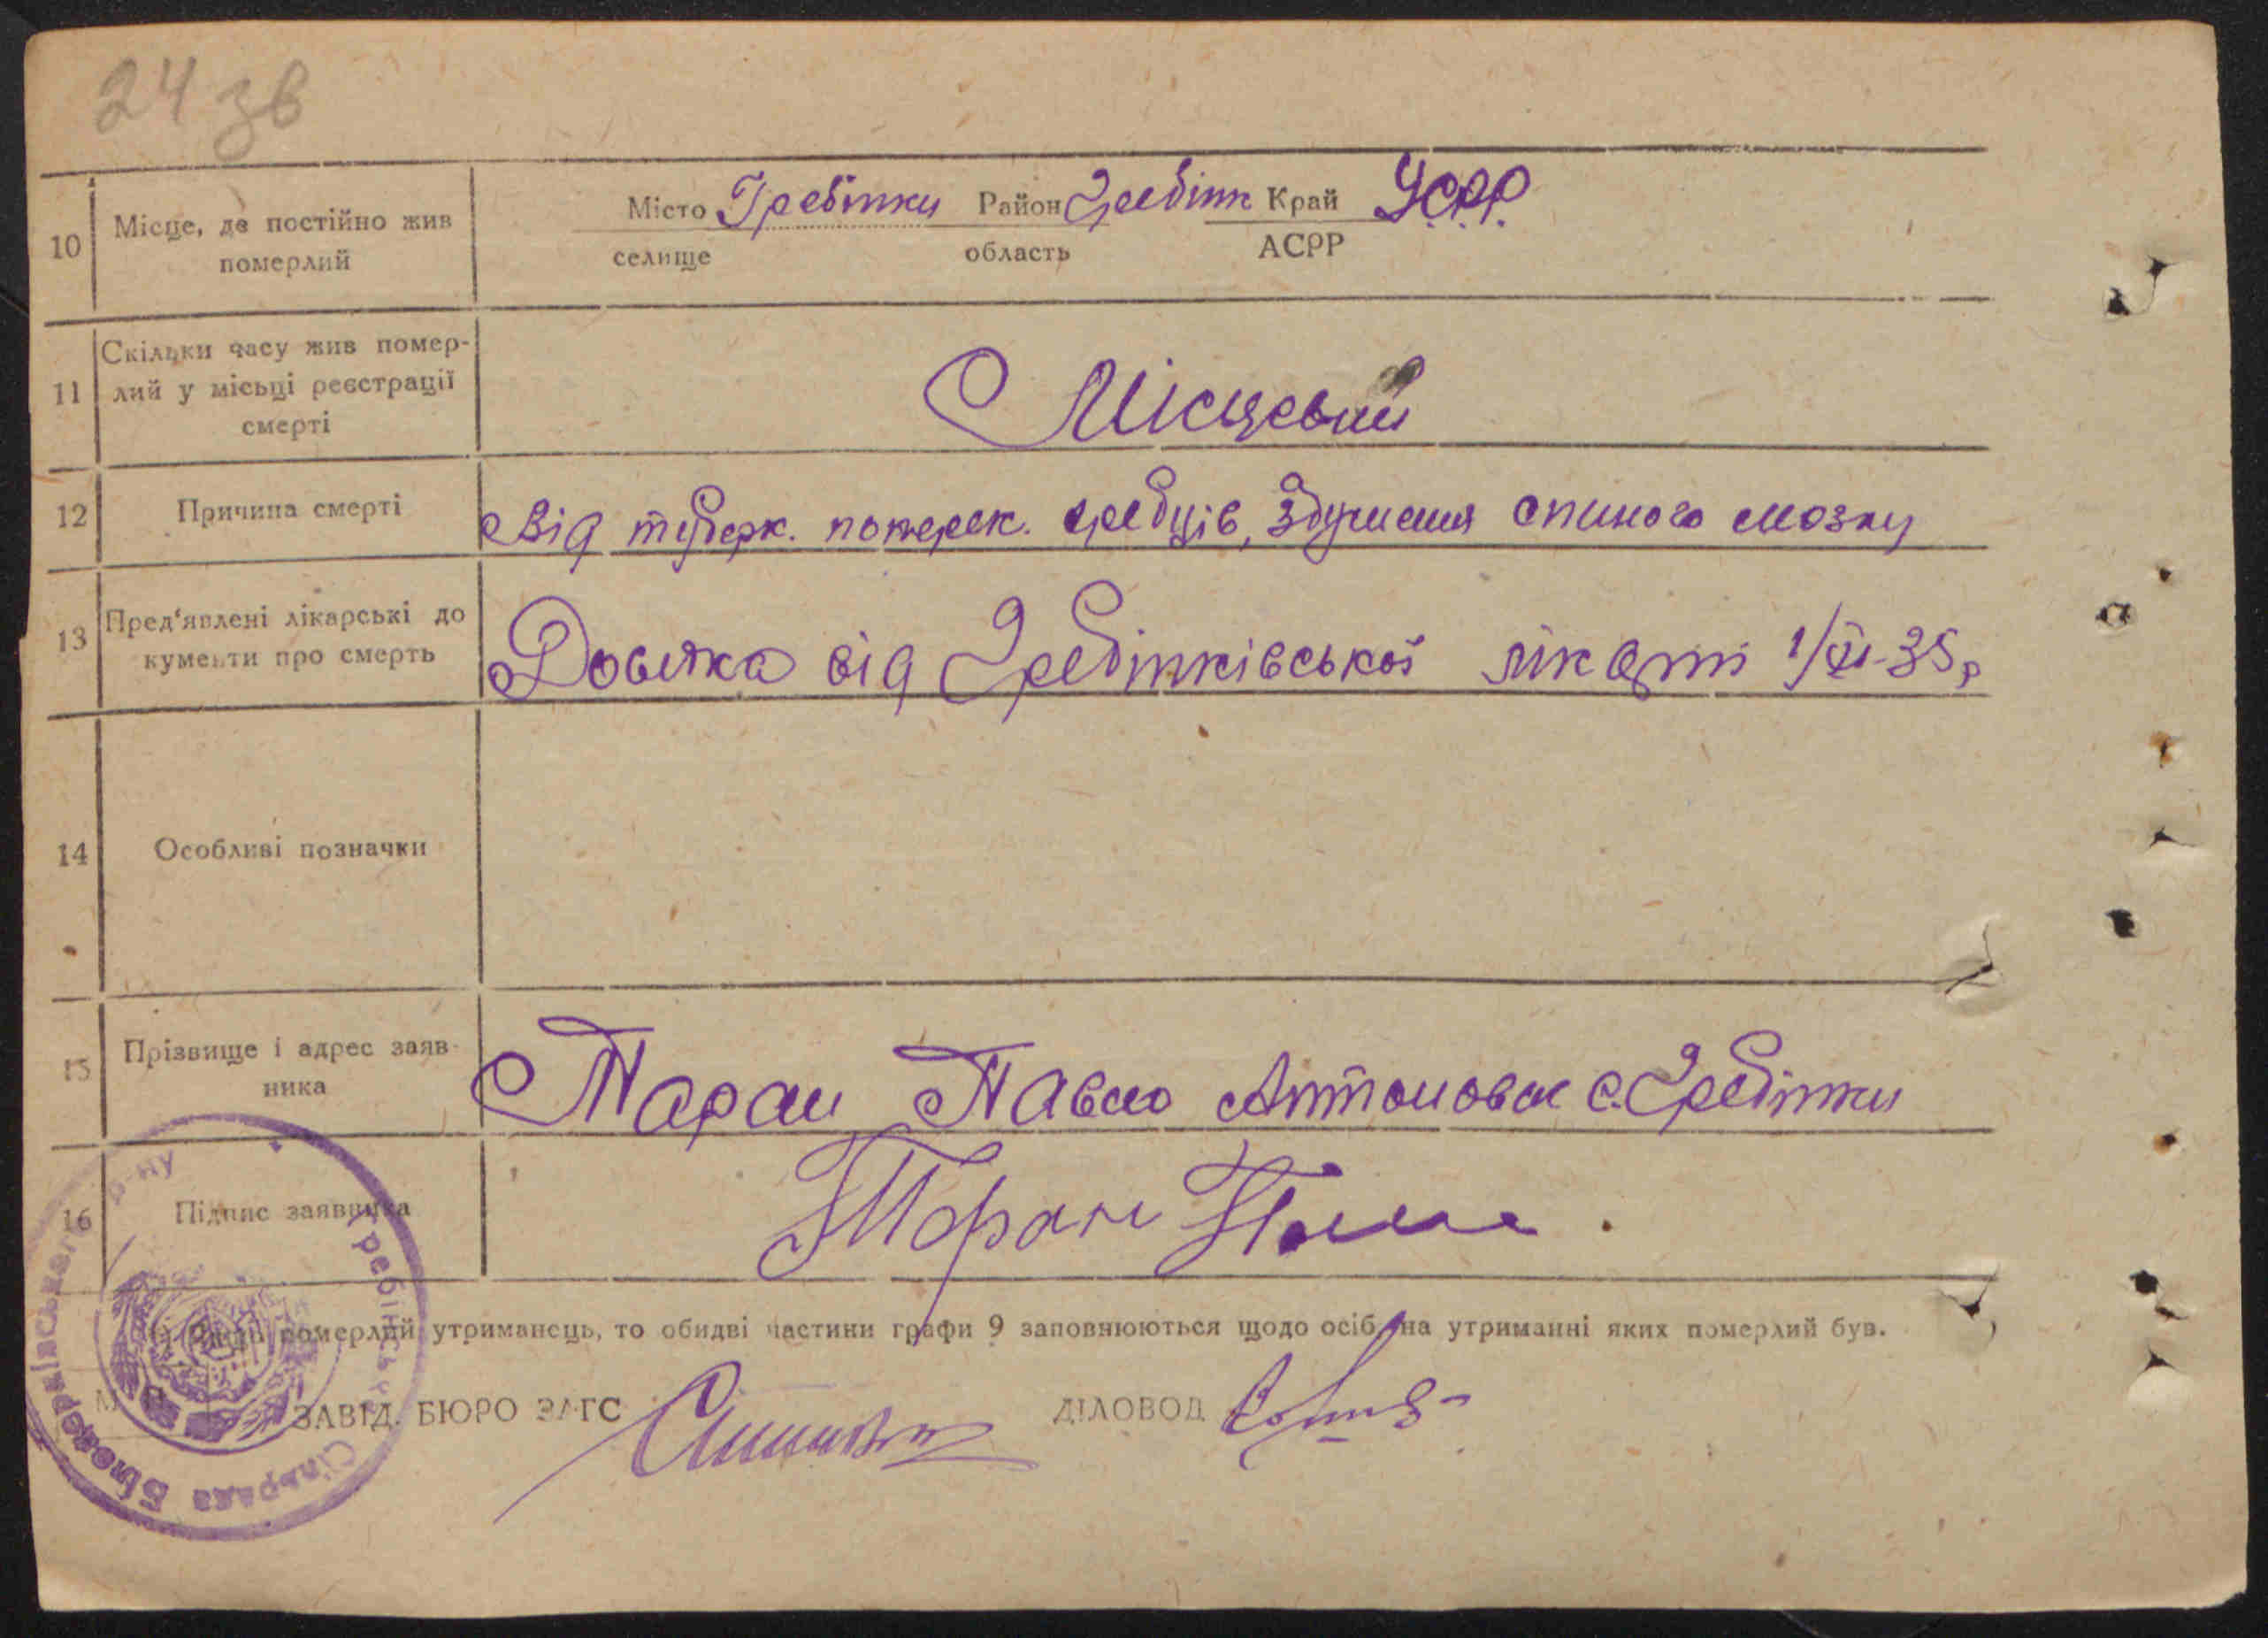 24 зв
10 Місце, де постійно жив померлий
Місто Гребінки Район Гребінк Край УСРР
селище область АСРР
11 Скільки часу жив помер-
лий у місьці реєстрації
смерті
Місцевий
12 Причина смерті
Від туберк. поперек. хребців, здушення спиного мозку
13 Пред'явлені лікарські до
кументи про смерть
Довідка від Гребінківської лікарні 1/XI-35р
14 Особливі позначки
15 Прізвище і адрес заяв-
ника
Таран Павло Антонович с. Гребінки
16 Підпис заявника
Таран
померлий утриманець, то обидві частини графи 9 заповнюються щодо осіб, на утриманні яких померлий був.
М. П. ЗАВІД. БЮРО ЗАГС ДІЛОВОД
Гребінська Сільрада Білоцерківського р-ну